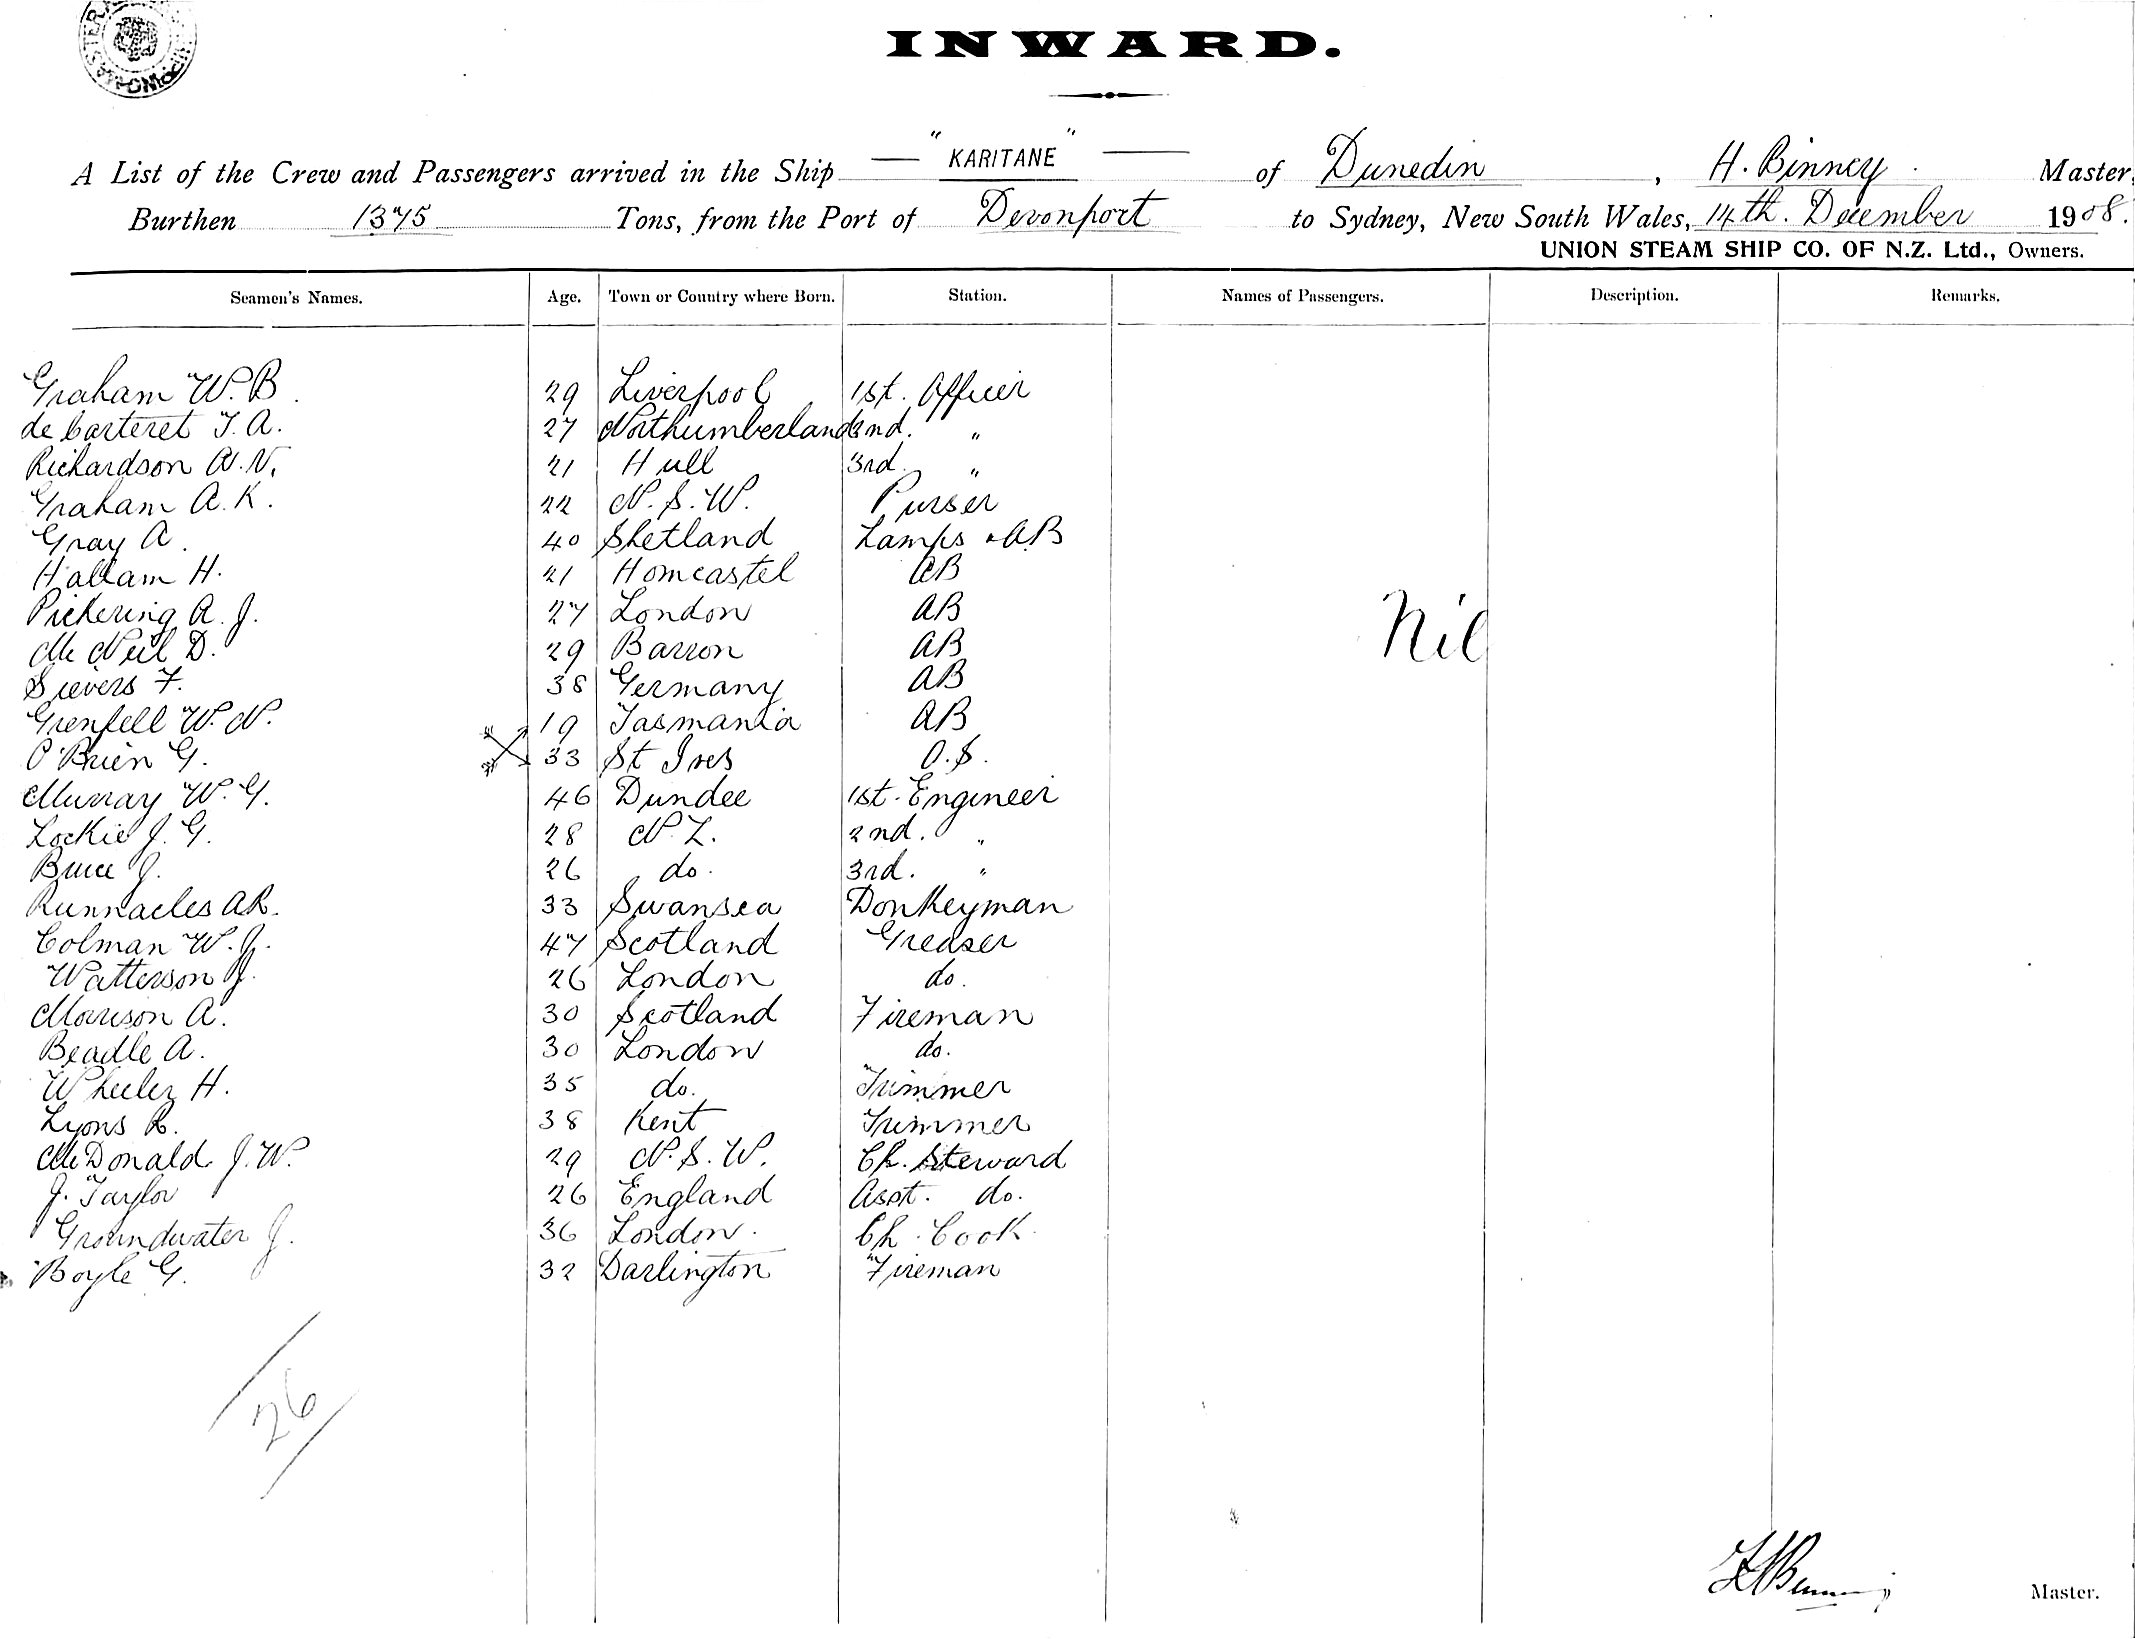 INWARD.
A List of the Crew and Passengers arrived in the Ship "KARITANE" of Dunedin, H. Binney. Master,
Burthen 1375 Tons, from the Port of Devonport to Sydney, New South Wales, 14th. December 1908.
UNION STEAM SHIP CO. OF N.Z. Ltd., Owners.
Seamen's Names. Age. Town or Country where Born. Station. Names of Passengers. Description. Remarks.
Graham W. B. 29 Liverpool 1st. Officer
de Carteret T. A. 27 Northumberland 2nd. "
Richardson W. N. 21 Hull 3rd. "
Graham A. K. 22 N. S. W. Purser
Gray A. 40 Shetland Lamps & AB
Hallam H. 21 Horncastel AB
Pickering A. J. 27 London AB
Nil
Mc Neil D. 29 Barron AB
Sievers F. 38 Germany AB
Grenfell W. N. 19 Tasmania AB
O'Brien G. 33 St Ives O.S.
Murray W. G. 46 Dundee 1st. Engineer
Lockie J. G. 28 N. Z. 2nd. "
Bruce J. 26 do. 3rd. "
Runnacles AR. 33 Swansea Donkeyman
Colman W. J. 47 Scotland Greaser
Watterson J. 26 London do.
Morrison A. 30 Scotland Fireman
Beadle A. 30 London do.
Wheeler H. 35 do. Trimmer
Lyons R. 38 Kent Trimmer
McDonald J. W. 29 N. S. W. Ch. Steward
J. Taylor 26 England Asst. do.
Groundwater J. 36 London. Ch. Cook
Boyle G. 32 Darlington Fireman
26
Master.